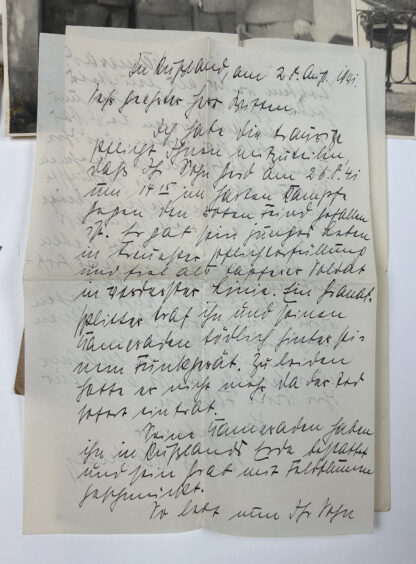 In Rußland am 28. Aug. 1941.
Sehr geehrter Herr Witten!
Ich habe die traurige
Pflicht Ihnen mitzuteilen,
daß Ihr Sohn Gerd am 26.8.41
um 14 15 im harten Kampfe
gegen den roten Feind gefallen
ist. Er gab sein junges Leben
in treuester Pflichterfüllung
und fiel als tapferer Soldat
in vorderster Linie. Ein Granat-
splitter traf ihn und seinen
Kameraden tödlich hinter sei-
nem Funkgerät. Zu leiden
hatte er nicht mehr da der Tod
sofort eintrat.
Seine Kameraden haben
ihn in Rußlands Erde bestattet
und sein Grab mit Feldblumen
geschmückt.
So lebt nun Ihr Sohn